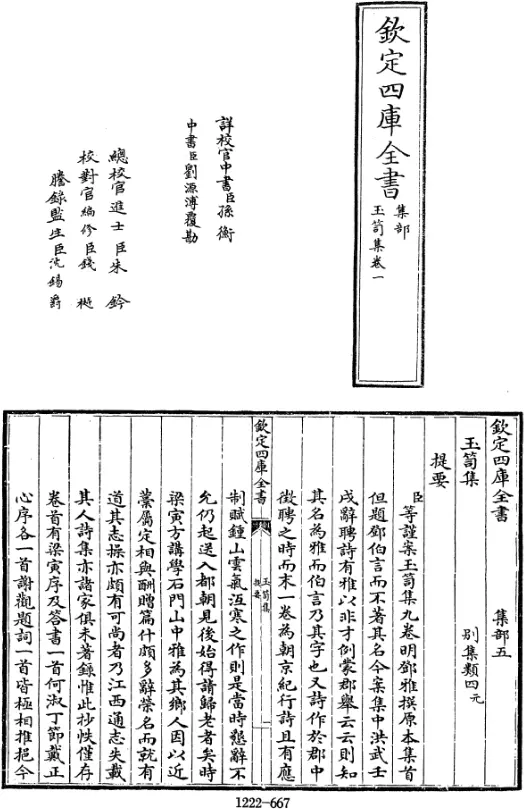 欽定四庫全書
集部
玉笥集卷一
詳校官中書臣孫衡
中書臣劉源溥覆勘
總校官進士臣朱鈐
校對官編修臣錢樾
謄錄監生臣沈錫爵
欽定四庫全書 集部五
玉笥集 別集類四元
提要
臣等謹案玉笥集九卷明鄧雅撰原本集首
但題鄧伯言而不著其名今案集中洪武壬
戌辭聘詩有雅以非才例蒙郡舉云云則知
其名為雅而伯言乃其字也又詩作於郡中
徵聘之時而末一卷為朝京紀行詩且有應
欽定四庫全書 玉笥集 提要 一
制賦鍾山雲氣沍寒之作則是當時懇辭不
允仍起送入都朝見後始得請歸老者矣時
梁寅方講學石門山中雅為其鄉人因以近
藁屬定相與酬贈篇什頗多辭榮名而就有
道其志操亦頗有可尚者乃江西通志失載
其人詩集亦諸家俱未著錄惟此抄帙僅存
卷首有梁寅序及答書一首何淑丁節戴正
心序各一首謝觀題詞一首皆極相推挹今
1222-667